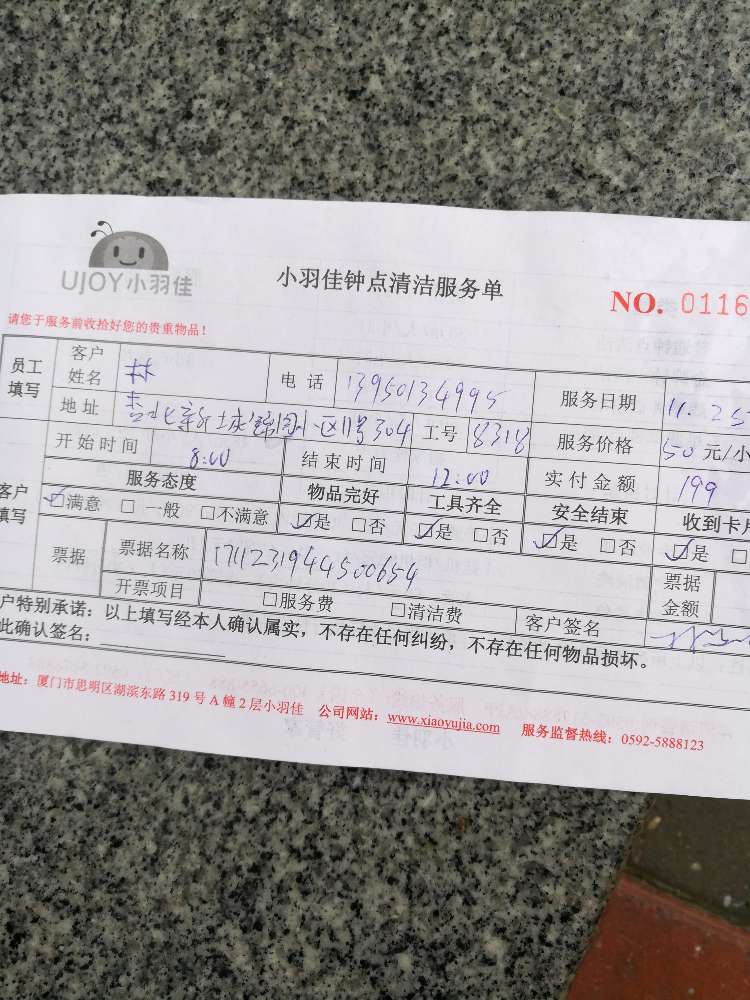 UJOY小羽佳
小羽佳钟点清洁服务单
NO. 0116
请您于服务前收拾好您的贵重物品!
员工填写 客户姓名 林 电话 13950134995 服务日期 11.25
地址 北 园小区11号304 工号 8318 服务价格 50元/小
开始时间 8:00 结束时间 12:00 实付金额 199
客户填写 服务态度 物品完好 工具齐全 安全结束 收到卡片
☑满意 □一般 □不满意 ☑是 □否 ☑是 □否 ☑是 □否 ☑是 □
票据 票据名称 1711231944500654 票据金额
开票项目 □服务费 □清洁费 客户签名
户特别承诺:以上填写经本人确认属实,不存在任何纠纷,不存在任何物品损坏。
此确认签名:
地址:厦门市思明区湖滨东路 319 号 A 幢 2 层小羽佳 公司网站:www.xiaoyujia.com 服务监督热线:0592-5888123